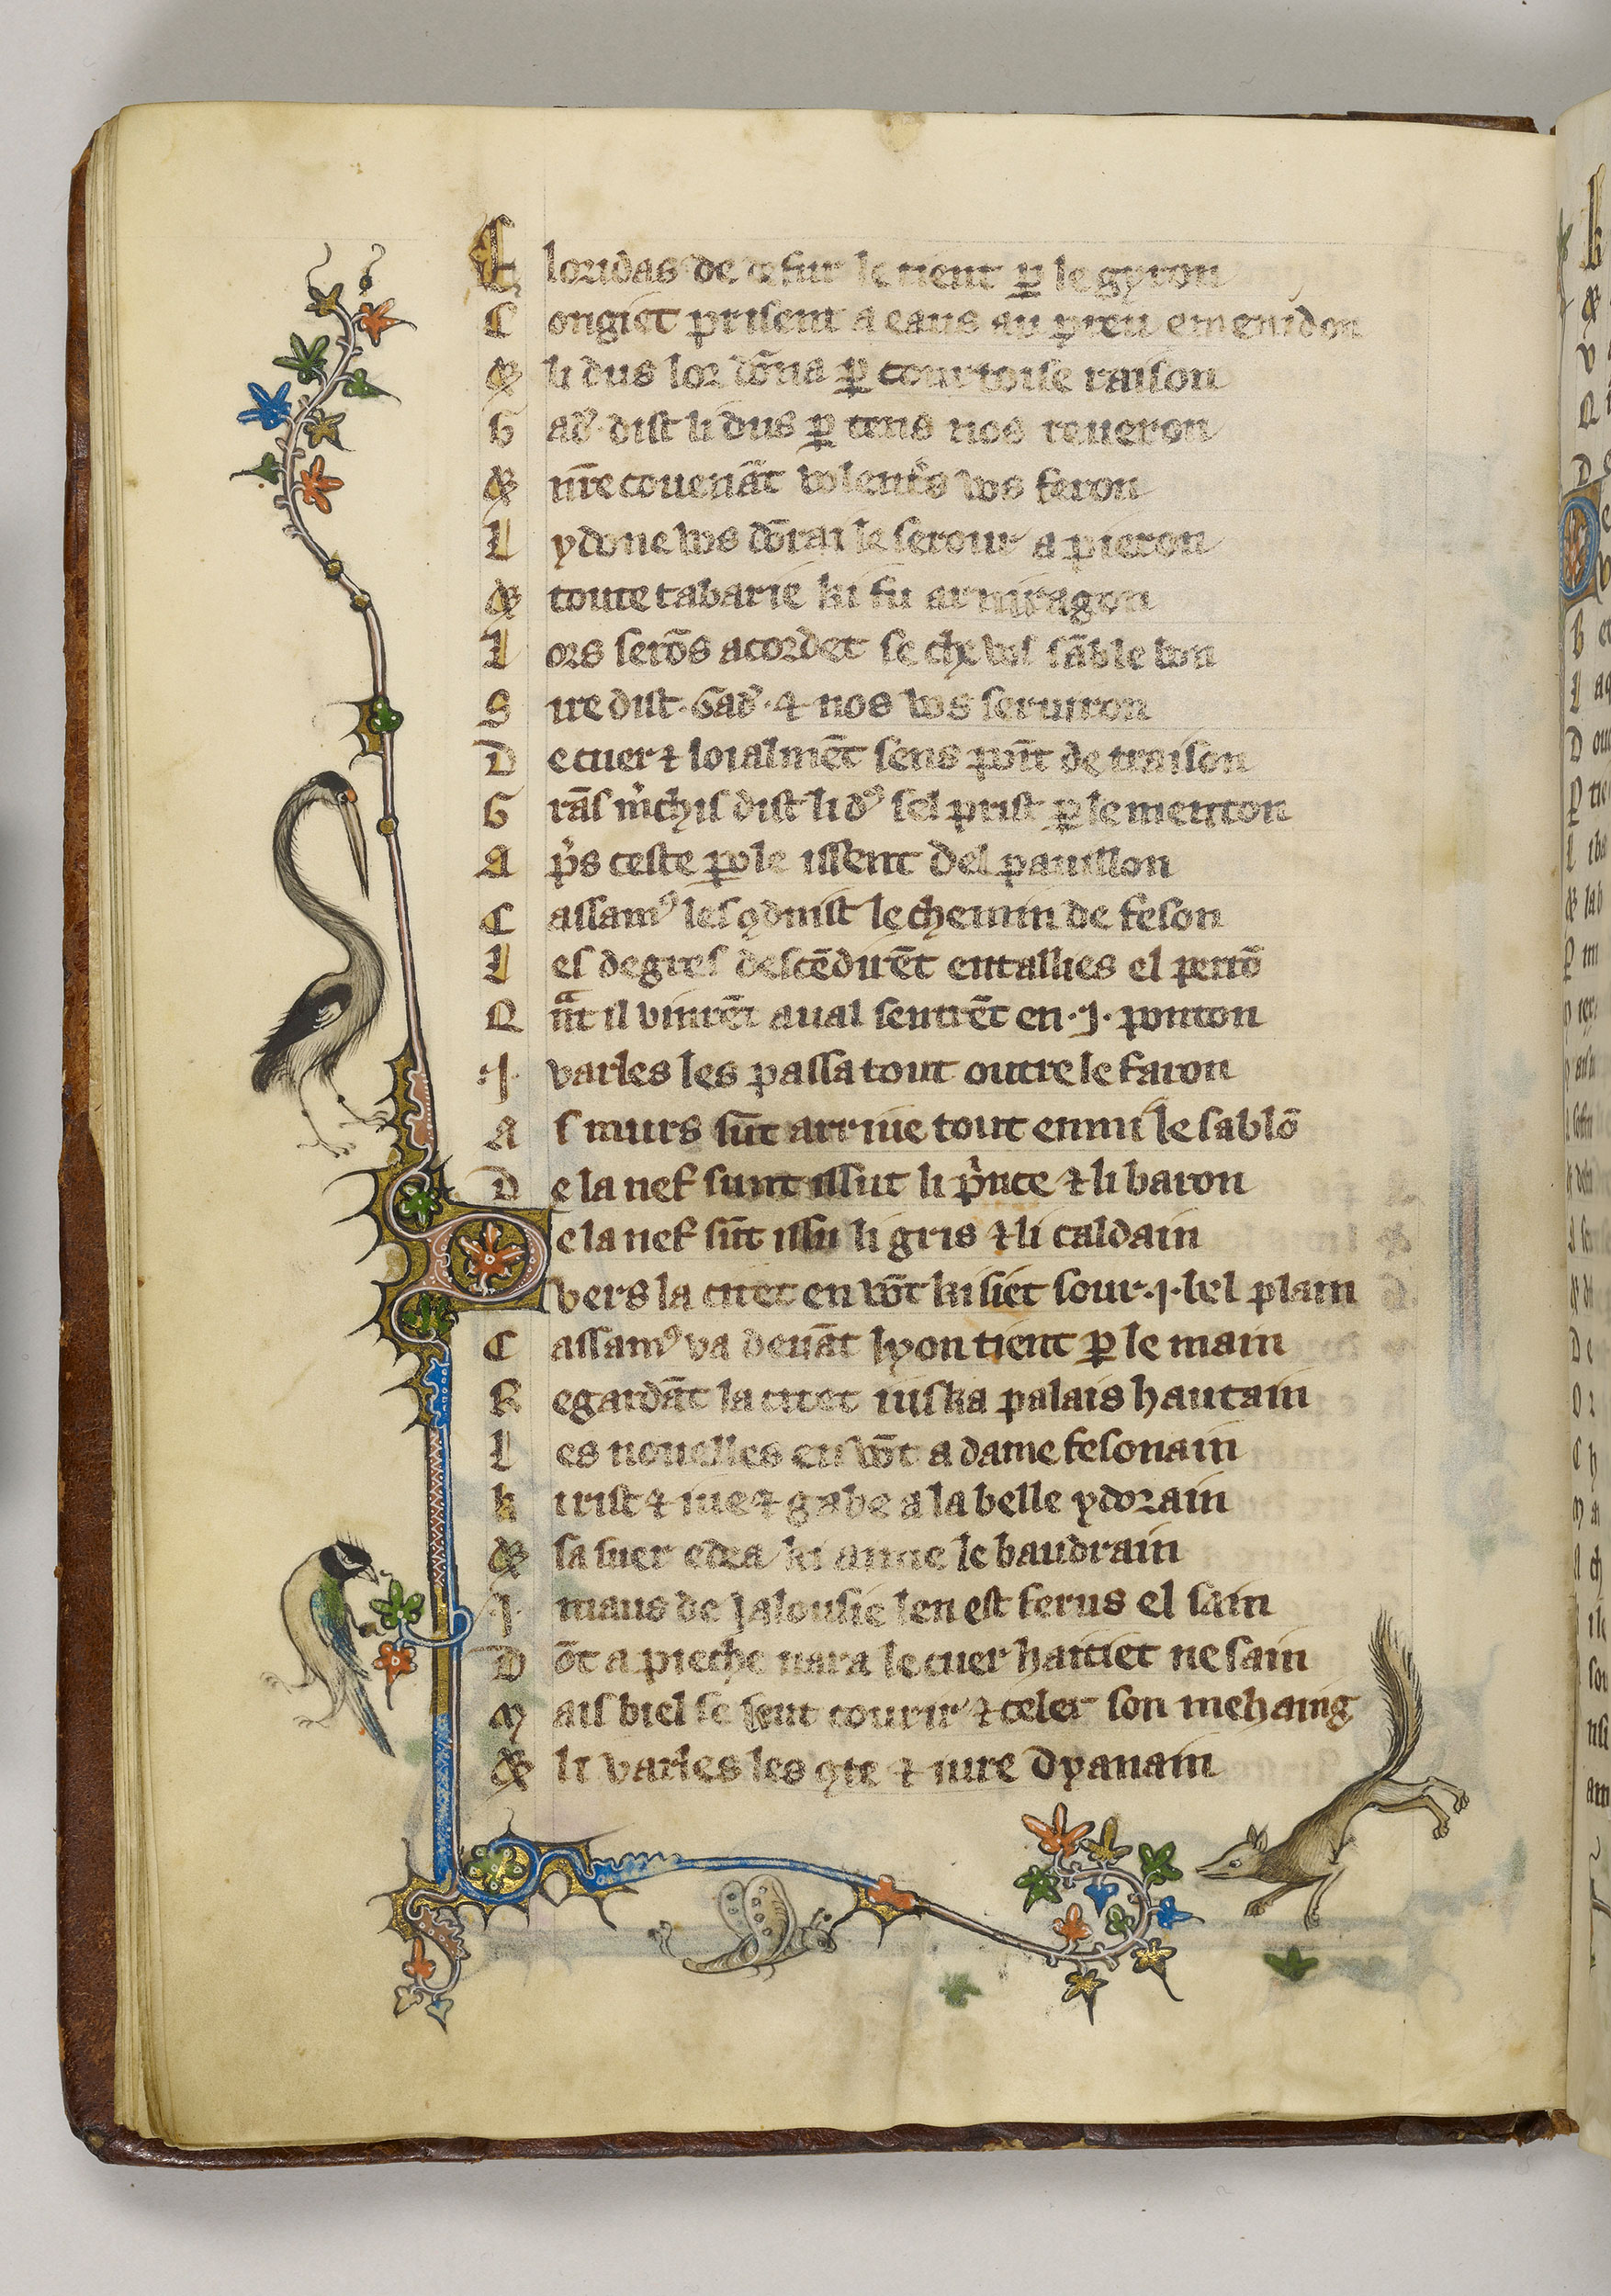 C lorıdas de ꞇ sur le tient ꝑ le gyron
C ongiet prisent a eaus au preu emenidon
& li dus lor dōna ꝑ courtoise raison
G ad᷒ dist li dus ꝑ tens nos reueron
& nr̄e couenāt volent᷒s vos feron
L ydone vos dōrai le serour a pieron
& toute tabarie ki fu amiragon
L ors serōs acordet se che vos sāble bon
S ire dist · Gad᷒ · ⁊ nos vos seruiron
D e cuer ⁊ loialmēt sens point de traison
G rās m᷒chis dist li dꝰ sel prist ꝑ le menton
A p᷒s ceste ꝑole issent del pauillon
C assamꝰ les ꝯduist le chemin de feson
L es degres descēdirēt entallies el perrō
Q nͣt il vinrēt aual sentrēt en · j · ponton
· j · varles les passa tout outre le faron
A s murs sūt arriue tout enmi le sablō
D e la nef sunt issut li p᷒nce ⁊ li baron
D e la nef sūt issu li gris ⁊ li caldain
vers la citet en vōt ki siet sour · j · bel plain
C assamꝰ va deuāt lyon tient ꝑ le main
R egardāt la citet iuska palais hautain
L es nouelles en vōt a dame fesonain
k i rist ⁊ iue ⁊ gabe a la belle ydorain
& sa suer edea ki aime le baudrain
J maus de jalousie len est ferus el sain
D ōt a pieche nara le cuer haitiet ne sain
M ais biel se seut couurir ⁊ celer son mehaing
& li varles les ꝯte ⁊ iure dyanain